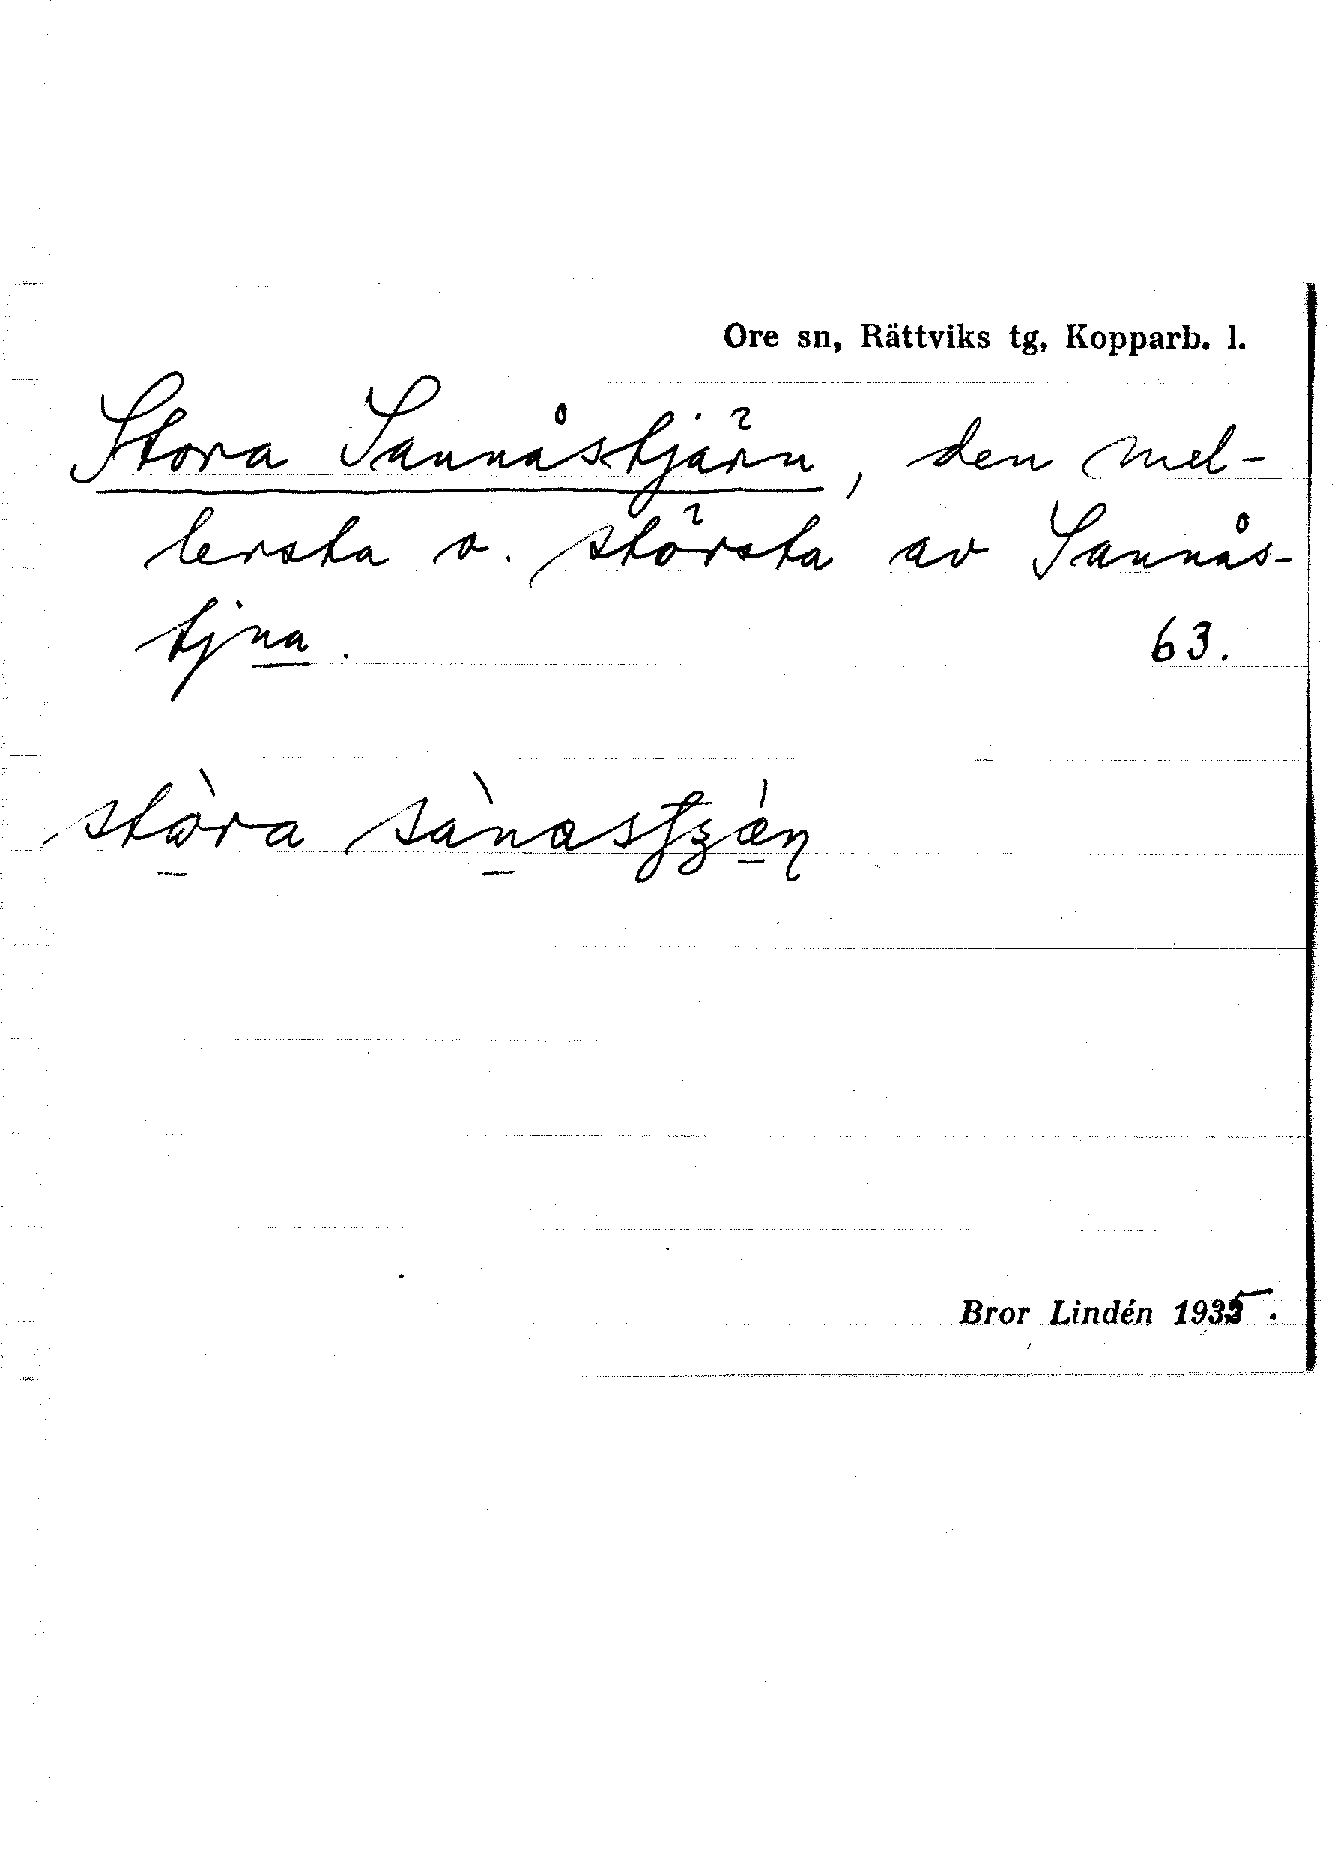 Ore sn, Rättviks tg, Kopparb. l.
Stora Sannåstjärn, den mel-
lersta o. största av Sannås-
tjna. 63.
stòra sànast̯ʒǽn̥
Bror Lindén 1935.